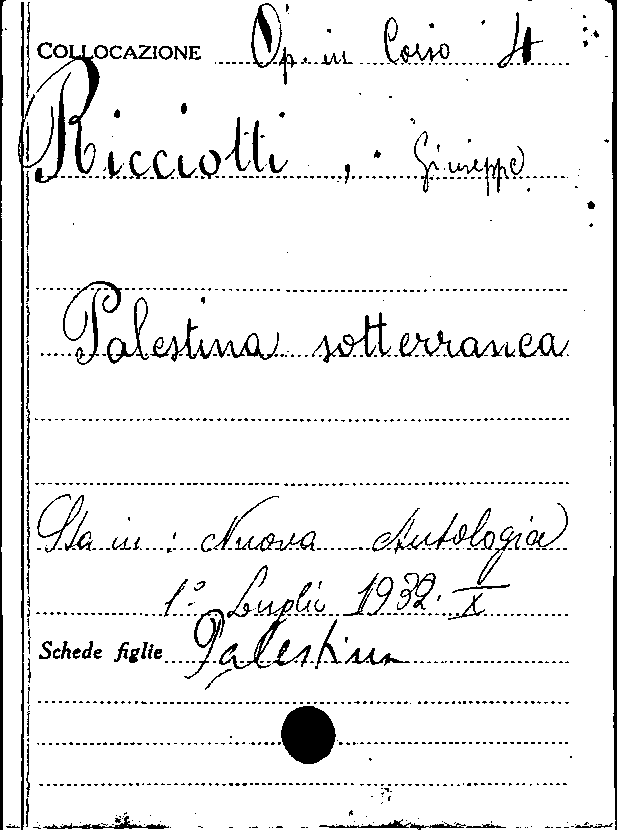 COLLOCAZIONE Op. in Corso 4
Ricciotti, Giuseppe
Palestina sotterranea
Sta in: Nuova Antologia
1° Luglio 1932. X
Schede figlie Palestina